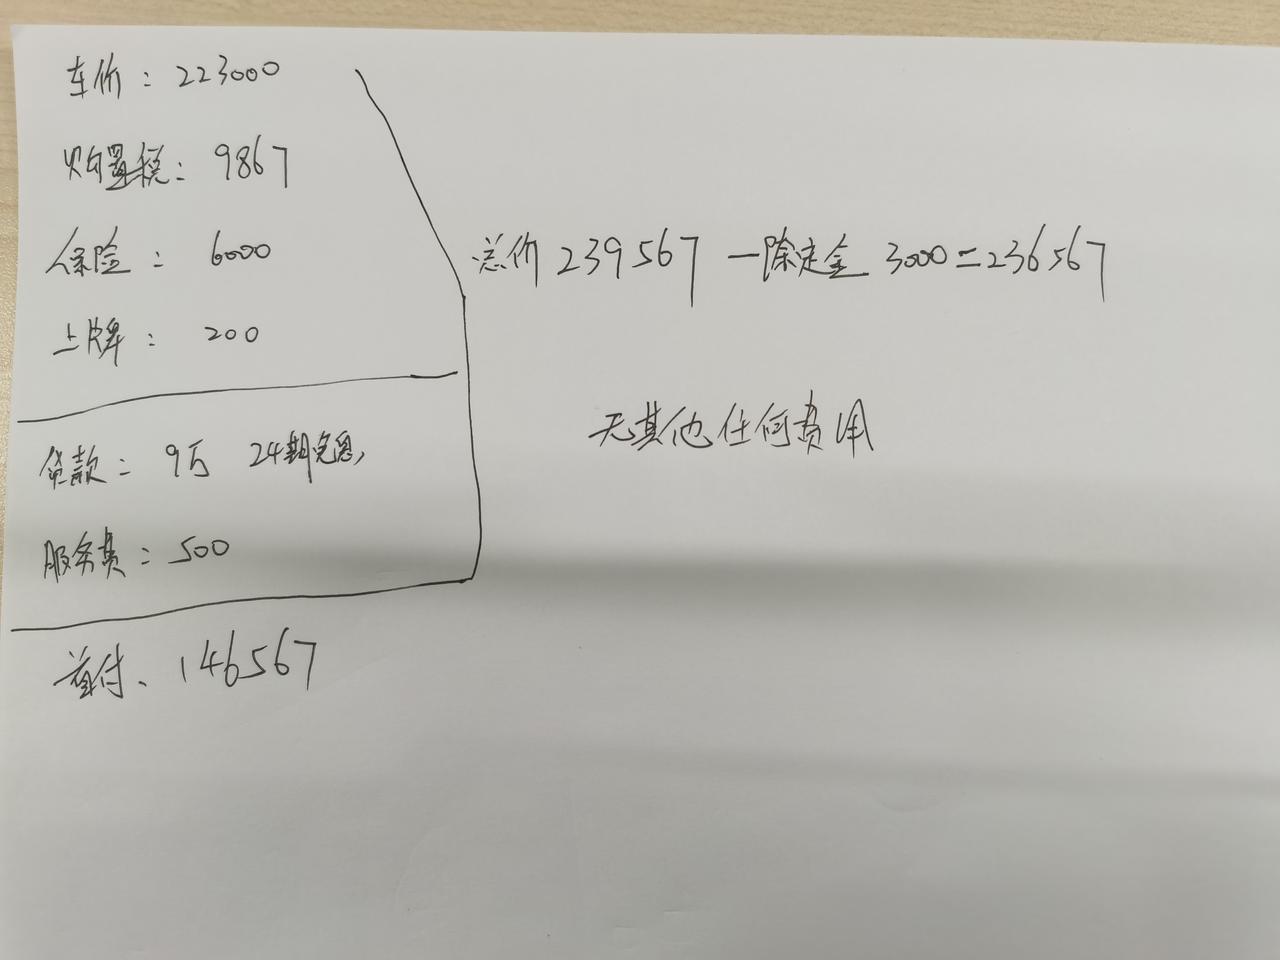 车价：223000
购置税：9867
保险：6000
上牌：200
总价 239567 一除定金 3000=236567
无其他任何费用
贷款：9万 24期免息，
服务费：500
首付、146567